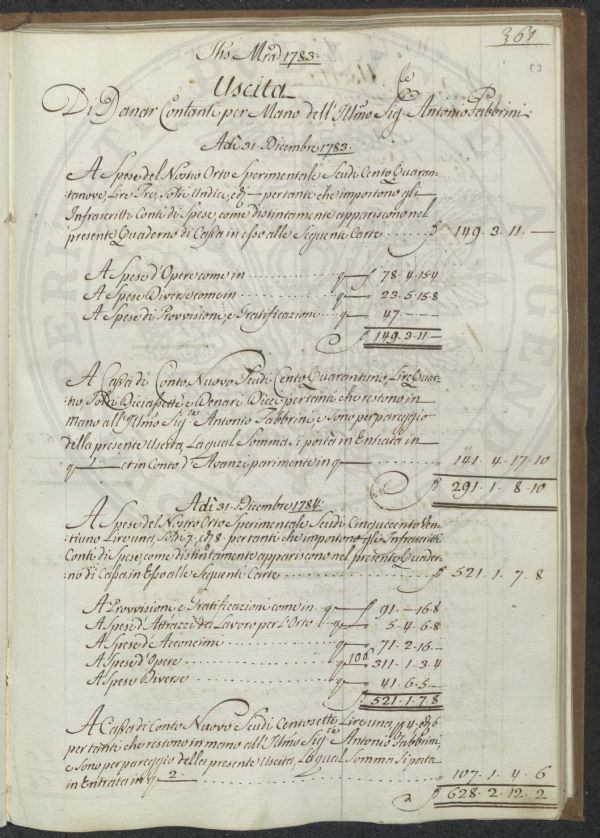 367
63
Jhs Mra 1783.
Uscita
Di Danar Contanti per Mano dell'Illmo Sigre Antonio Fabbrini
Adi 31. Dicembre 1783.
A Spese del Nostro Orto Sperimentale Scudi Cento Quaran-
tanove, Lire Tre, Soldi Undici, e d — per tanti che importono gli
Infrascritti Conti di Spese, come distintamente appariscono nel
presente Quaderno di Cassa in esso alle Seguenti Carte 149. 3. 11. —
A Spese d'Opere come in 78. 4. 15. 4
A Spese Diverse come in 23. 5. 15. 8
A Spese di Provvisioni, e Gratificazioni 47 — — —
149. 3. 11 —
A Cassa di Conto Nuovo Scudi Cento Quarantuno, Lire Quat-
tro, Soldi Diciassette e Denari Dieci per tanti che restono in
mano all'Illmo Sigre Antonio Fabbrini, e sono per pareggio
della presente Uscita, La qual Somma si porta in Entrata in
1. et in Conto d'Avanzi parimente in 141. 4. 17. 10
291. 1. 8. 10
Adi 31. Dicembre 1784.
A Spese del Nostro Orto Sperimentale Scudi Cinquecento Ven-
tiuno Lire una, Soldi 7, e d 8. per tanti che importono gli Infrascritti
Conti di Spese, come distintamente appariscono nel presente Quader-
no di Cassa in Esso alle Seguenti Carte 521. 1. 7. 8
A Provvisioni, e Gratificazioni come in 91. — 16. 8
A Spese d'Attrazzi da Lavoro per L'Orto 5. 4. 6. 8
A Spese d'Acconcimi 71. 2. 16. —
A Spese d'Opere 100 311. 1. 3. 4
A Spese Diverse 41. 6. 5 —
521. 1. 7. 8
A Cassa di Conto Nuovo Scudi Centosette Lire una, 4. e d 6
per tanti che restono in mano all'Illmo Sigre Antonio Fabbrini,
e Sono per pareggio della presente Uscita, La qual Somma Si porta
in Entrata in 2. 107. 1. 4. 6
628. 2. 12. 2